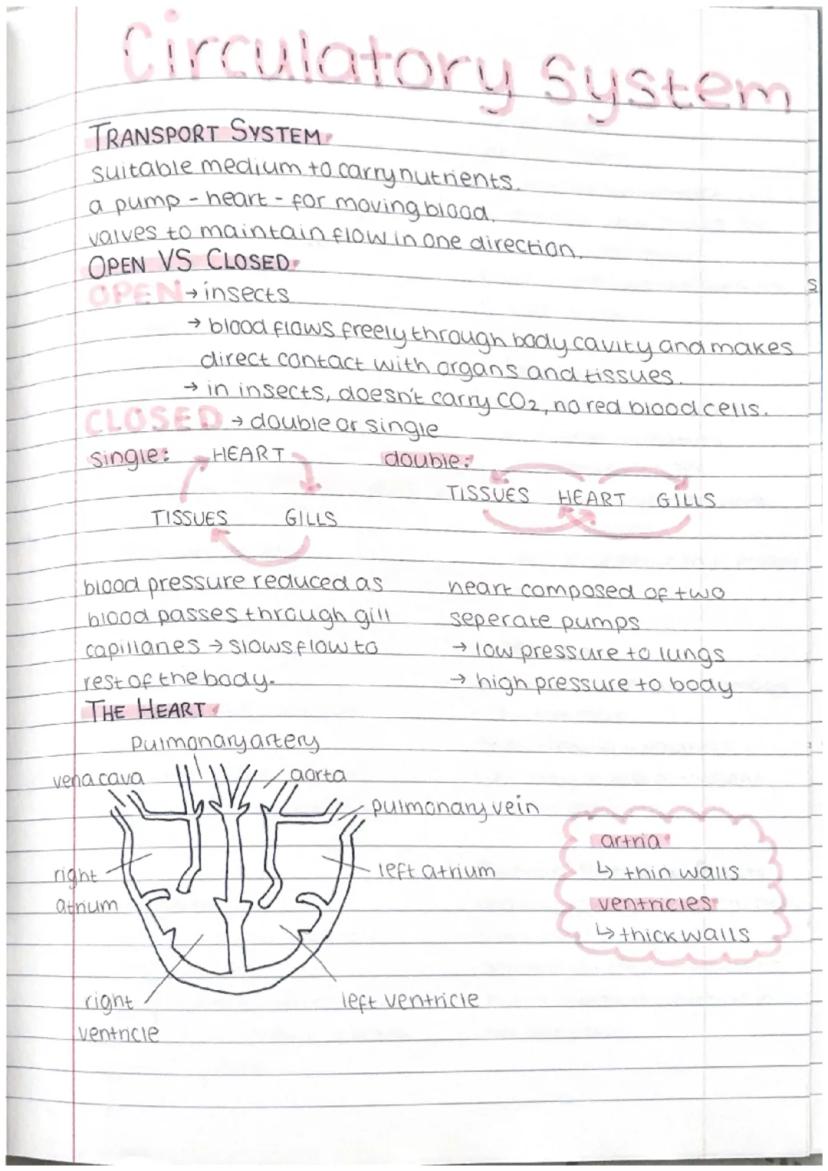 Circulatory System
TRANSPORT SYSTEM.
suitable medium to carry nutrients.
a pump - heart - for moving blood.
valves to maintain flow in one direction.
OPEN VS CLOSED.
OPEN → insects
→ blood flows freely through body cavity and makes
direct contact with organs and tissues.
→ in insects, doesn't carry CO2, no red blood cells.
CLOSED → double or single
single: HEART
TISSUES GILLS
double:
TISSUES HEART GILLS
blood pressure reduced as
blood passes through gill
capillaries → slows flow to
rest of the body.
heart composed of two
seperate pumps
→ low pressure to lungs
→ high pressure to body
THE HEART
Pulmonary artery
vena cava
aorta
pulmonary vein
right
atrium
left atrium
right
ventricle
left ventricle
artria
↳ thin walls
ventricles
↳ thick walls
s